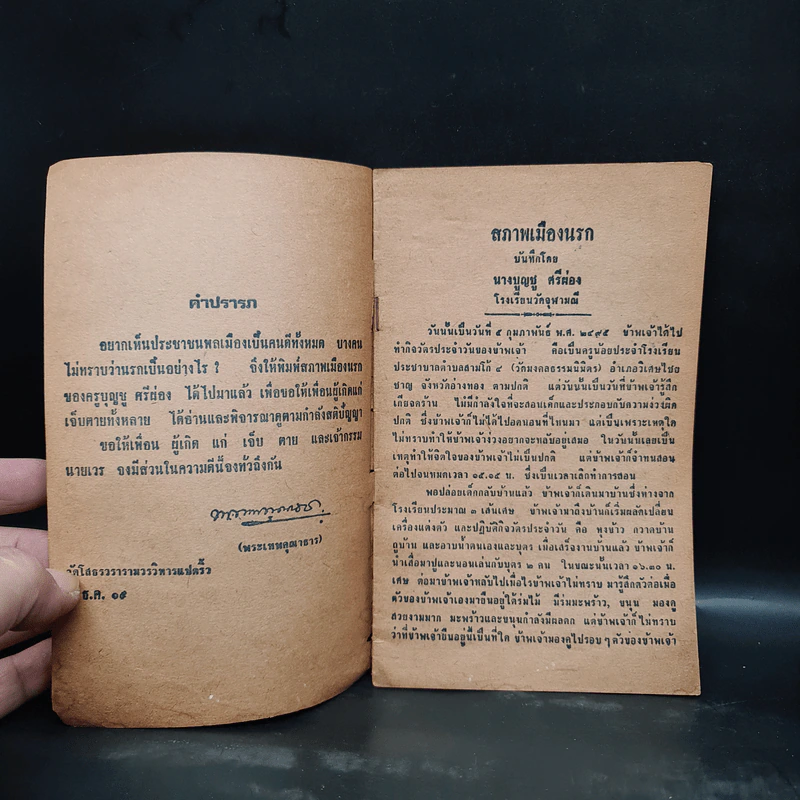 คำปรารภ
อยากเห็นประชาชนพลเมืองเป็นคนดีทั้งหมด บางคน
ไม่ทราบว่านรกเป็นอย่างไร ? จึงให้พิมพ์สภาพเมืองนรก
ของครูบุญชู ศรีผ่อง ได้ไปมาแล้ว เพื่อขอให้เพื่อนผู้เกิดแก่
เจ็บตายทั้งหลาย ได้อ่านและพิจารณาดูตามกำลังสติปัญญา
ขอให้เพื่อน ผู้เกิด แก่ เจ็บ ตาย และเจ้ากรรม
นายเวร จงมีส่วนในความดีนี้จงทั่วถึงกัน
(พระเทพคุณาธาร)
วัดโสธรวรารามวรวิหารแปดริ้ว
ธ.ค. ๑๙
สภาพเมืองนรก
บันทึกโดย
นางบุญชู ศรีผ่อง
โรงเรียนวัดจุฬามณี
วันนั้นเป็นวันที่ ๕ กุมภาพันธ์ พ.ศ. ๒๔๙๕ ข้าพเจ้าได้ไป
ทำกิจวัตรประจำวันของข้าพเจ้า คือเป็นครูน้อยประจำโรงเรียน
ประชาบาลตำบลสามโก้ ๔ (วัดมงคลธรรมนิมิตร) อำเภอวิเศษไชย
ชาญ จังหวัดอ่างทอง ตามปกติ แต่วันนั้นเป็นวันที่ข้าพเจ้ารู้สึก
เกียจคร้าน ไม่มีกำลังใจที่จะสอนเด็กและประกอบกับความง่วงผิด
ปกติ ซึ่งข้าพเจ้าก็ไม่ได้ไปอดนอนที่ไหนมา แต่เป็นเพราะเหตุใด
ไม่ทราบทำให้ข้าพเจ้าง่วงอยากจะหลับอยู่เสมอ ในวันนั้นเลยเป็น
เหตุทำให้จิตใจของข้าพเจ้าไม่เป็นปกติ แต่ข้าพเจ้าก็จำทนสอน
ต่อไปจนหมดเวลา ๑๕.๑๕ น. ซึ่งเป็นเวลาเลิกทำการสอน
พอปล่อยเด็กกลับบ้านแล้ว ข้าพเจ้าก็เดินมาบ้านซึ่งห่างจาก
โรงเรียนประมาณ ๓ เส้นเศษ ข้าพเจ้ามาถึงบ้านก็เริ่มผลัดเปลี่ยน
เครื่องแต่งตัว และปฏิบัติกิจวัตรประจำวัน คือ หุงข้าว กวาดบ้าน
ถูบ้าน และอาบน้ำตนเองและบุตร เพื่อเสร็จงานบ้านแล้ว ข้าพเจ้าก็
นำเสื่อมาปูและนอนเล่นกับบุตร ๒ คน ในขณะนั้นเวลา ๑๖.๓๐ น.
เศษ ต่อมาข้าพเจ้าหลับไปเมื่อไรข้าพเจ้าไม่ทราบ มารู้สึกตัวต่อเมื่อ
ตัวของข้าพเจ้าเองมายืนอยู่ใต้ร่มไม้ มีร่มมะพร้าว, ขนุน มองดู
สวยงามมาก มะพร้าวและขนุนกำลังมีผลดก แต่ข้าพเจ้าก็ไม่ทราบ
ว่าที่ข้าพเจ้ายืนอยู่นี้เป็นที่ใด ข้าพเจ้ามองดูไปรอบ ๆ ตัวของข้าพเจ้า